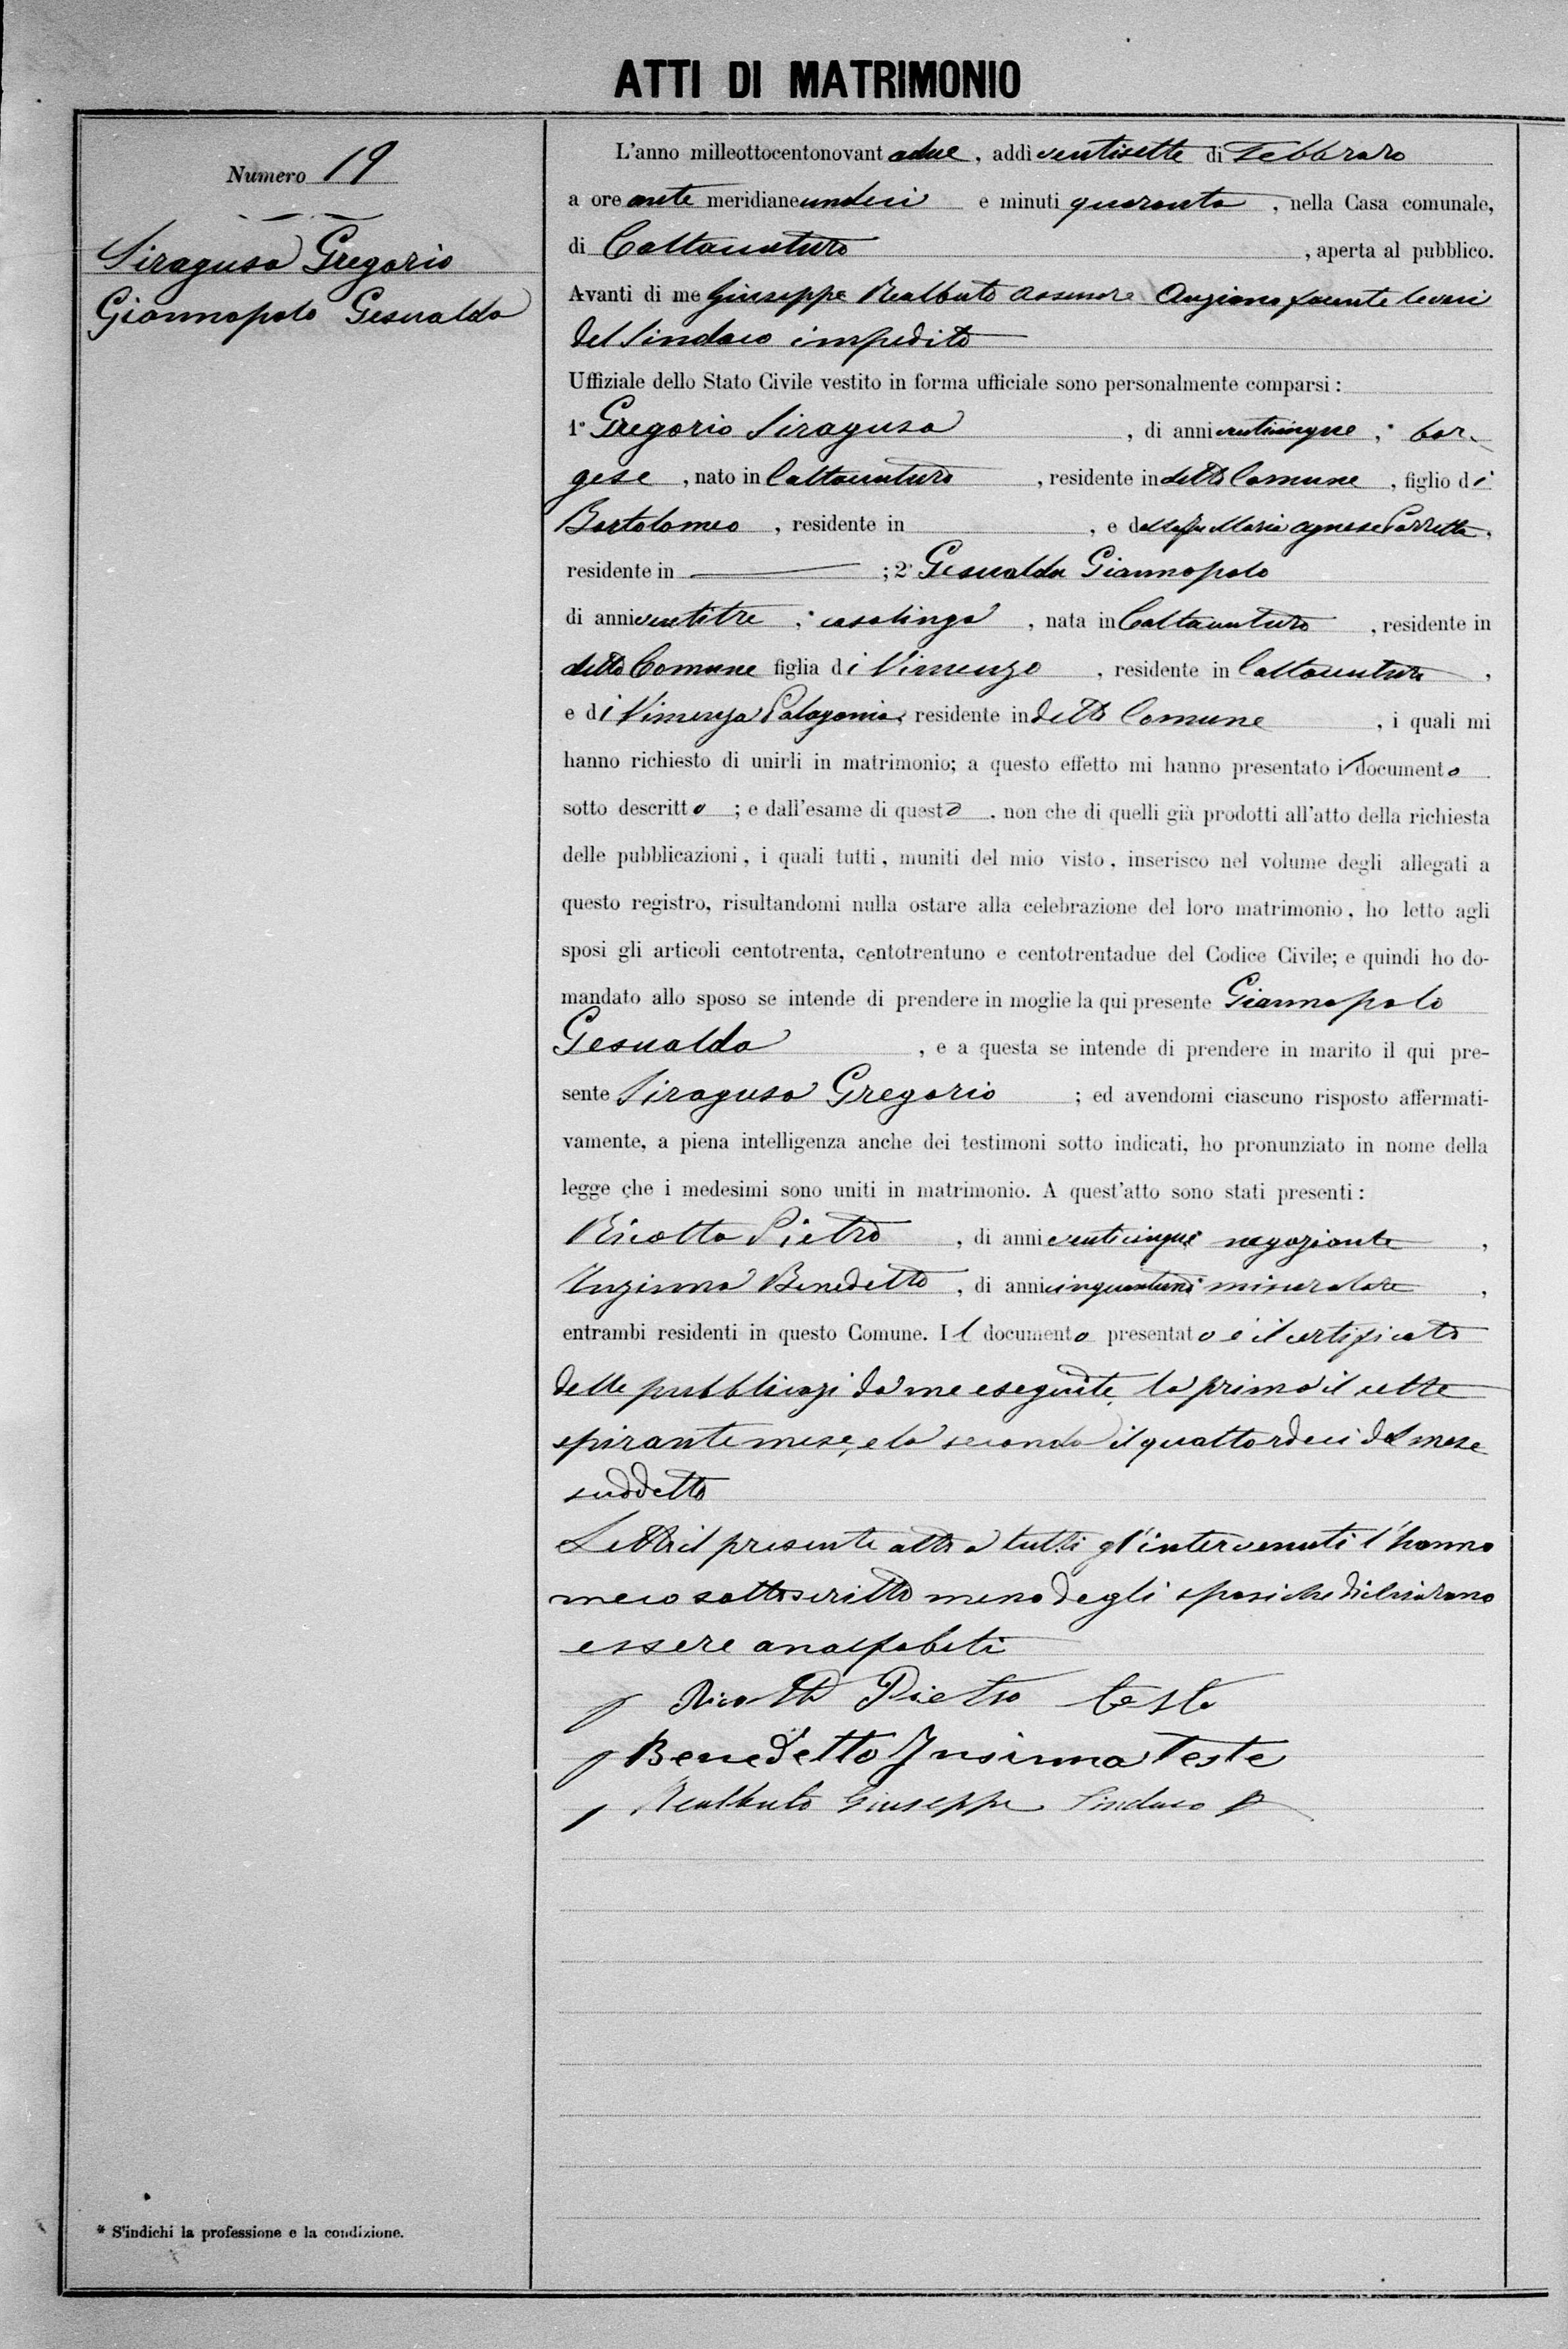 ATTI DI MATRIMONIO
Numero 19
Siragusa Gregorio
Giannopolo Gesualda
L'anno milleottocentonovantadue, addì ventisette di Febbraro
a ore ante meridiane undici e minuti quaranta, nella Casa comunale,
di Caltavuturo, aperta al pubblico.
Avanti di me Giuseppe Realbuto Assessore Anziano facente le veci
del Sindaco impedito
Uffiziale dello Stato Civile vestito in forma ufficiale sono personalmente comparsi:
1° Gregorio Siragusa, di anni venticinque, * bor-
gese, nato in Caltavuturo, residente in detto Comune, figlio di
Bartolomeo, residente in, e della fu Maria Agnese
residente in ; 2° Gesualda Giannopolo
di anni ventitre, * casalinga, nata in Caltavuturo, residente in
detto Comune figlia di Vincenzo, residente in Caltavuturo,
e di Vincenza Palagonia, residente in detto Comune, i quali mi
hanno richiesto di unirli in matrimonio; a questo effetto mi hanno presentato il documento
sotto descritto; e dall'esame di questo, non che di quelli già prodotti all'atto della richiesta
delle pubblicazioni, i quali tutti, muniti del mio visto, inserisco nel volume degli allegati a
questo registro, risultandomi nulla ostare alla celebrazione del loro matrimonio, ho letto agli
sposi gli articoli centotrenta, centotrentuno e centotrentadue del Codice Civile; e quindi ho do-
mandato allo sposo se intende di prendere in moglie la qui presente Giannopolo
Gesualda, e a questa se intende di prendere in marito il qui pre-
sente Siragusa Gregorio; ed avendomi ciascuno risposto affermati-
vamente, a piena intelligenza anche dei testimoni sotto indicati, ho pronunziato in nome della
legge che i medesimi sono uniti in matrimonio. A quest'atto sono stati presenti:
Ricotta Pietro, di anni venticinque negoziante,
Inzinna Benedetto, di anni cinquantuno misuratore,
entrambi residenti in questo Comune. Il documento presentato è il certificato
delle pubblicazi da me eseguite, la prima il sette
spirante mese, e la seconda il quattordici del mese
suddetto
Letto il presente atto a tutti gl'intervenuti l'hanno
meco sottoscritto meno degli sposi che dichiarano
essere analfabeti
Ricotta Pietro teste
Benedetto Insinna Teste
Realbuto Giuseppe Sindaco
* S'indichi la professione e la condizione.